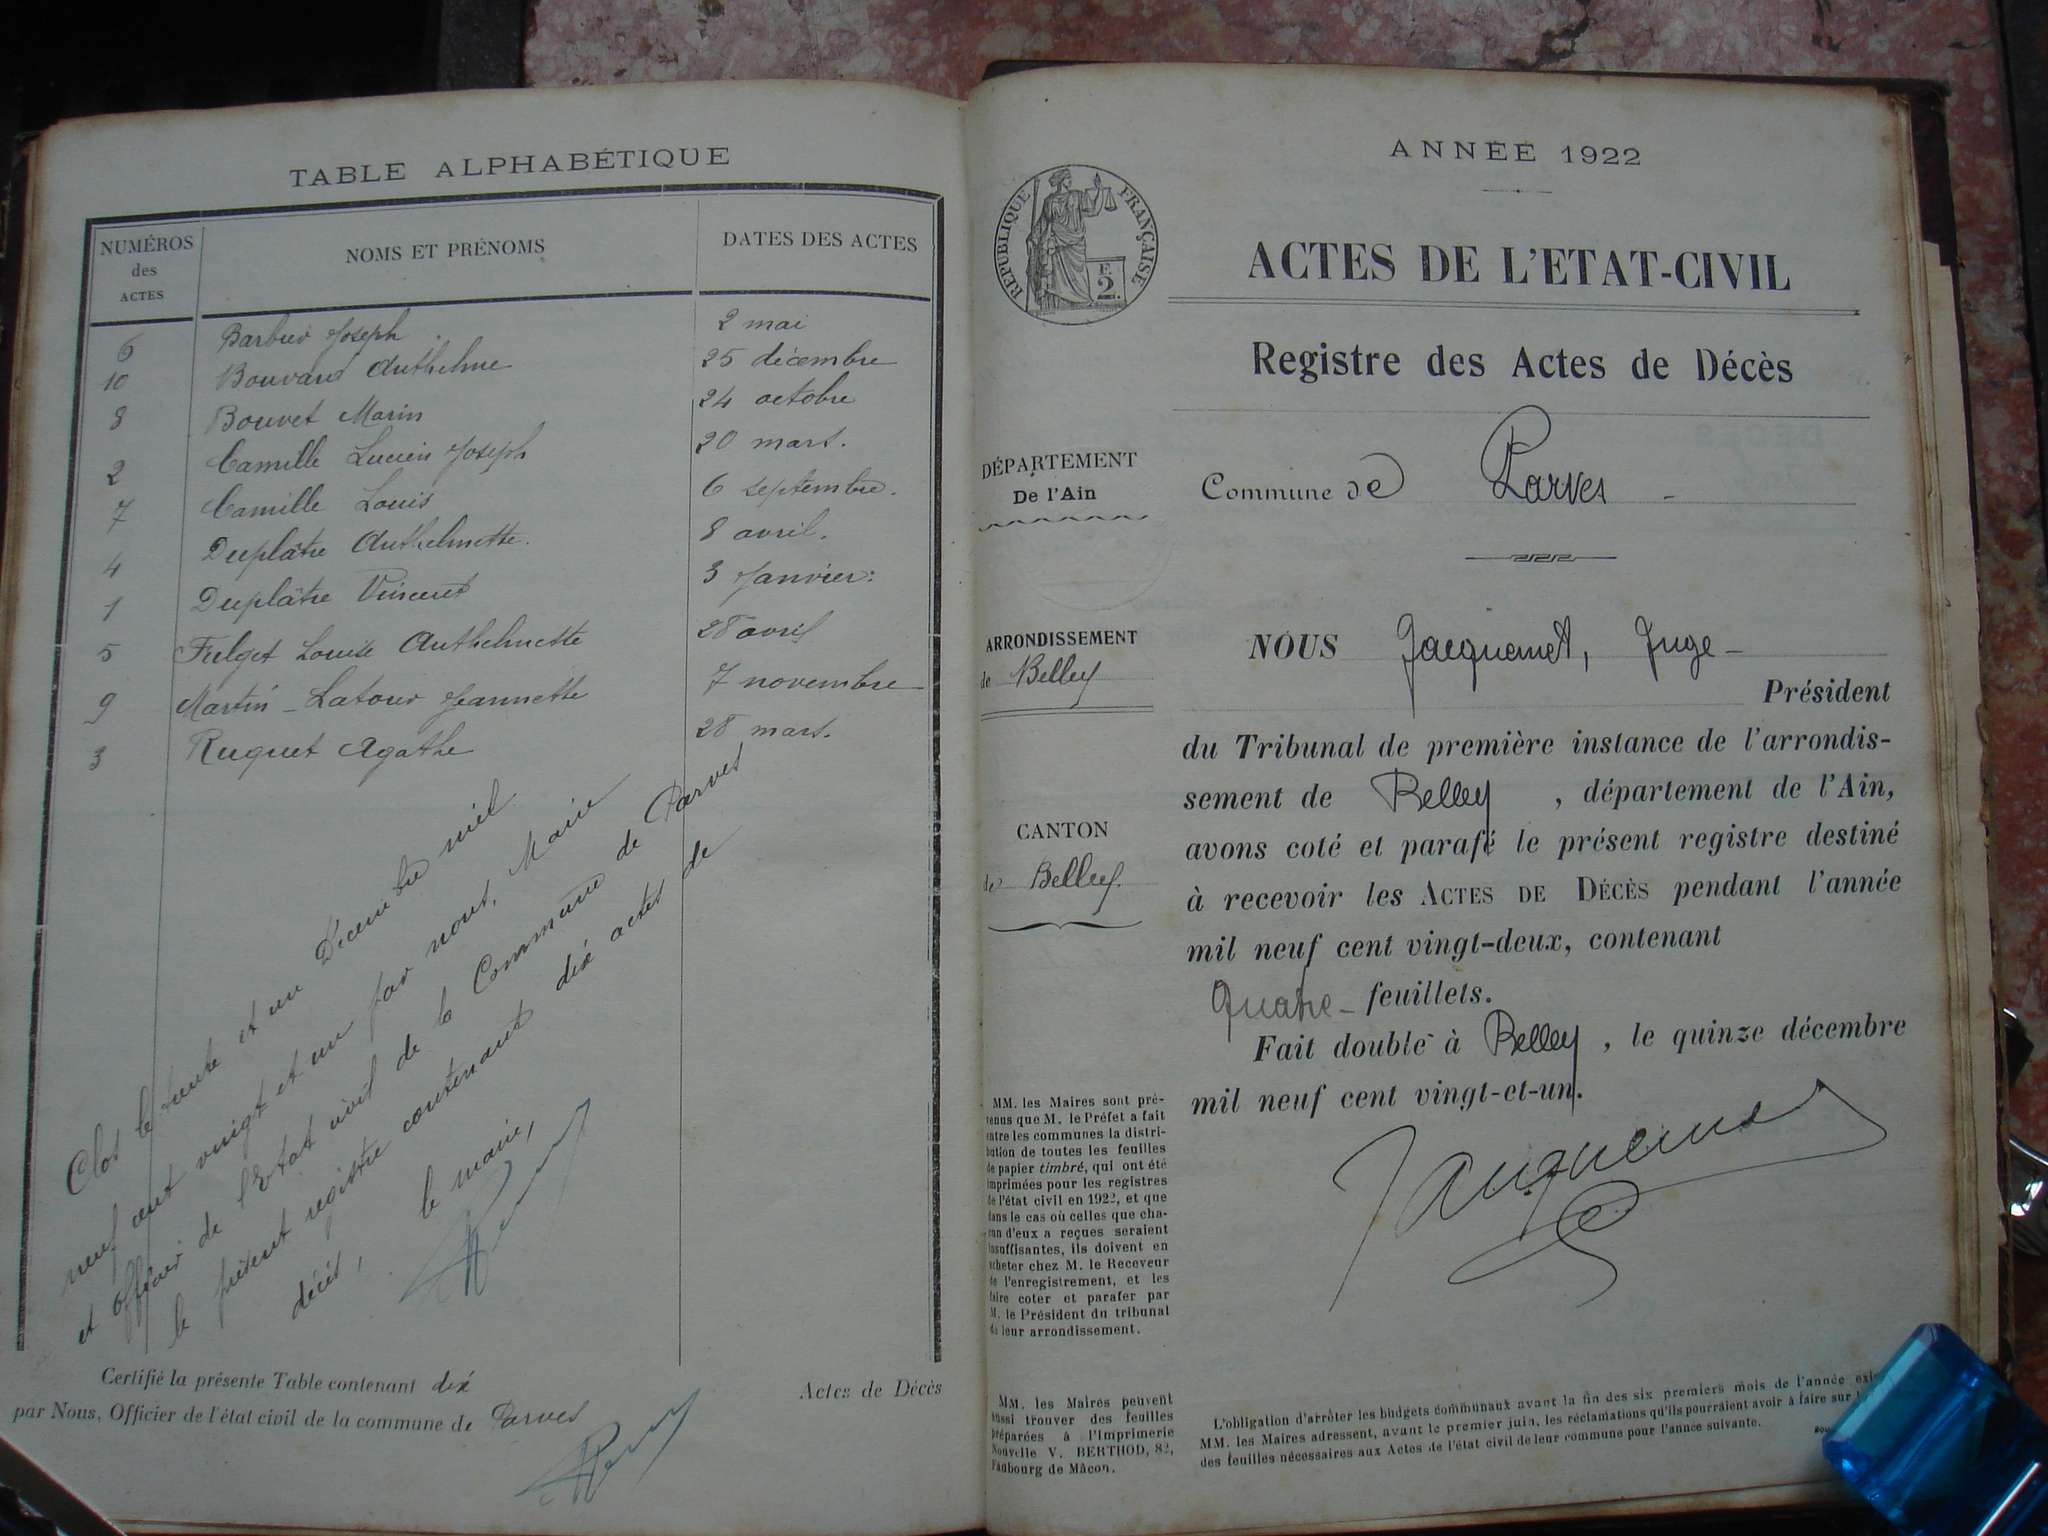 TABLE ALPHABÉTIQUE
NUMÉROS des ACTES
NOMS ET PRÉNOMS
DATES DES ACTES
6 Barbier Joseph 2 mai
10 Bouvard Anthelme 25 décembre
8 Bouvet Marin 24 octobre
2 Camille Lucien Joseph 20 mars.
7 Camille Louis 6 septembre.
4 Duplâtre Anthelmette. 8 avril.
1 Duplâtre Vincent 3 Janvier:
5 Fulget Louise Anthelmette 28 avril
9 Martin-Latour Jeannette 7 novembre
3 Ruquet Agathe 28 mars.
Clos le trente et un Décembre mil
neuf cent vingt et un par nous, Maire
et officier de l'Etat civil de la Commune de Parves
le présent registre contenant dix actes de
décès, le maire,
Certifié la présente Table contenant dix Actes de Décès
par Nous, Officier de l'état civil de la commune de Parves
ANNÉE 1922
RÉPUBLIQUE FRANÇAISE
F. 2.
ACTES DE L'ETAT-CIVIL
Registre des Actes de Décès
DÉPARTEMENT
De l'Ain
Commune de Parves
ARRONDISSEMENT
de Belley
CANTON
de Belley.
NOUS Jacquemet, Juge
Président
du Tribunal de première instance de l'arrondis-
sement de Belley, département de l'Ain,
avons coté et parafé le présent registre destiné
à recevoir les ACTES DE DÉCÈS pendant l'année
mil neuf cent vingt-deux, contenant
Quatre feuillets.
Fait double à Belley, le quinze décembre
mil neuf cent vingt-et-un.
Jacquemet
MM. les Maires sont pré-
venus que M. le Préfet a fait
entre les communes la distri-
bution de toutes les feuilles
de papier timbré, qui ont été
imprimées pour les registres
de l'état civil en 1922, et que
dans le cas où celles que cha-
cun d'eux a reçues seraient
insuffisantes, ils doivent en
acheter chez M. le Receveur
de l'enregistrement, et les
faire coter et parafer par
M. le Président du tribunal
de leur arrondissement.
MM. les Maires peuvent
aussi trouver des feuilles
préparées à l'Imprimerie
Nouvelle V. BERTHOD, 82,
Faubourg de Mâcon.
L'obligation d'arrêter les budgets communaux avant la fin des six premiers mois de l'année
MM. les Maires adressent, avant le premier juin, les réclamations qu'ils pourraient avoir à faire sur
des feuilles nécessaires aux Actes de l'état civil de leur commune pour l'année suivante.